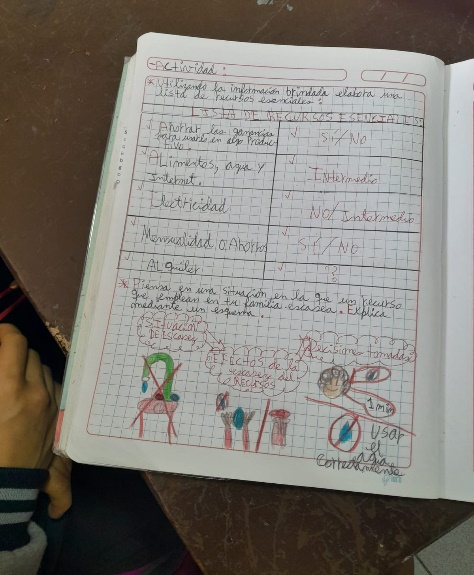 Actividad:
* Utilizando la información brindada elabora una
lista de recursos esenciales:
LISTA DE RECURSOS ESENCIALES
Ahorrar las ganancias
para usarlo en algo Produc-
tivo.
Sí/No
Alimentos, agua y
Internet.
Intermedio
Electricidad
No/Intermedio
Mensualidad o Ahorro
Sí/No
Alquiler
?
* Piensa en una situación en la que un recurso
que emplean en tu familia escasea. Explica
mediante un esquema.
Situación
DE Escasez
EFECTOS de la
escasez del
RECURSOS
Decisiones tomadas
1 min
Usar
el
agua
Correctamente